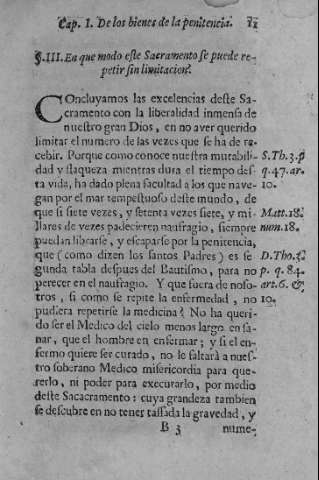 Cap. I. De los bienes de la penitencia.
§. III. En que modo este Sacramento se puede re-
petir sin limitacion.
COncluyamos las excelencias deste Sa-
cramento con la liberalidad inmensa de
nuestro gran Dios, en no aver querido
limitar el numero de las vezes que se ha de re-
cebir. Porque como conoce nuestra mutabili-
dad y flaqueza mientras dura el tiempo des- S. Th. 3. p
ta vida, ha dado plena facultad a los que nave- q. 47. ar.
gan por el mar tempestuoso deste mundo, de 10.
que si siete vezes, y setenta vezes siete, y mi- Matt. 18.
llares de vezes padecieren naufragio, siempre num. 18.
puedan librarse, y escaparse por la penitencia,
que (como dizen los santos Padres) es se- D. Tho. 3.
gunda tabla despues del Bautismo, para no p. q. 84.
perecer en el naufragio. Y que fuera de noso- art. 6. &
tros, si como se repite la enfermedad, no 10.
pudiera repetirse la medicina? No ha queri-
do ser el Medico del cielo menos largo en sa-
nar, que el hombre en enfermar; y si el en-
fermo quiere ser curado, no le faltarà a nues-
tro soberano Medico misericordia para que-
rerlo, ni poder para executarlo, por medio
deste Sacacramento: cuya grandeza tambien
se descubre en no tener tassada la gravedad, y
B 3 nume-